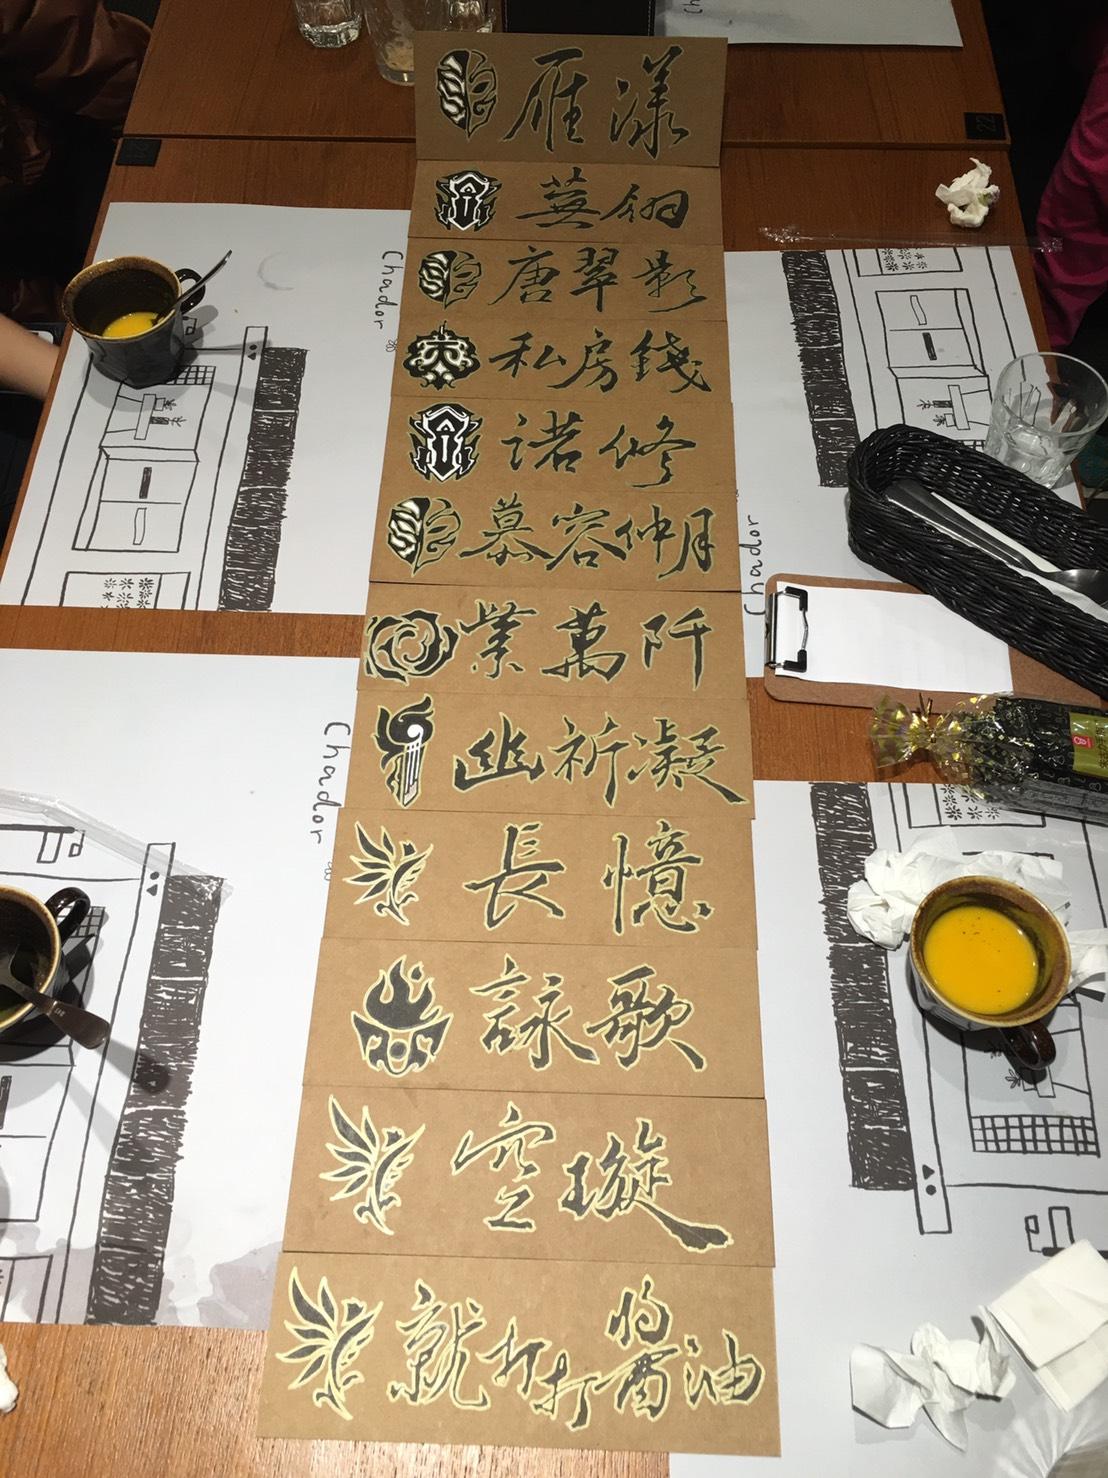 雁漾
蕪翎
唐翠影
私房錢
諾修
慕容仲月
業萬阡
幽祈凝
長憶
詠歌
空璇
就打打醬油
Chador
Chador
Chador
22